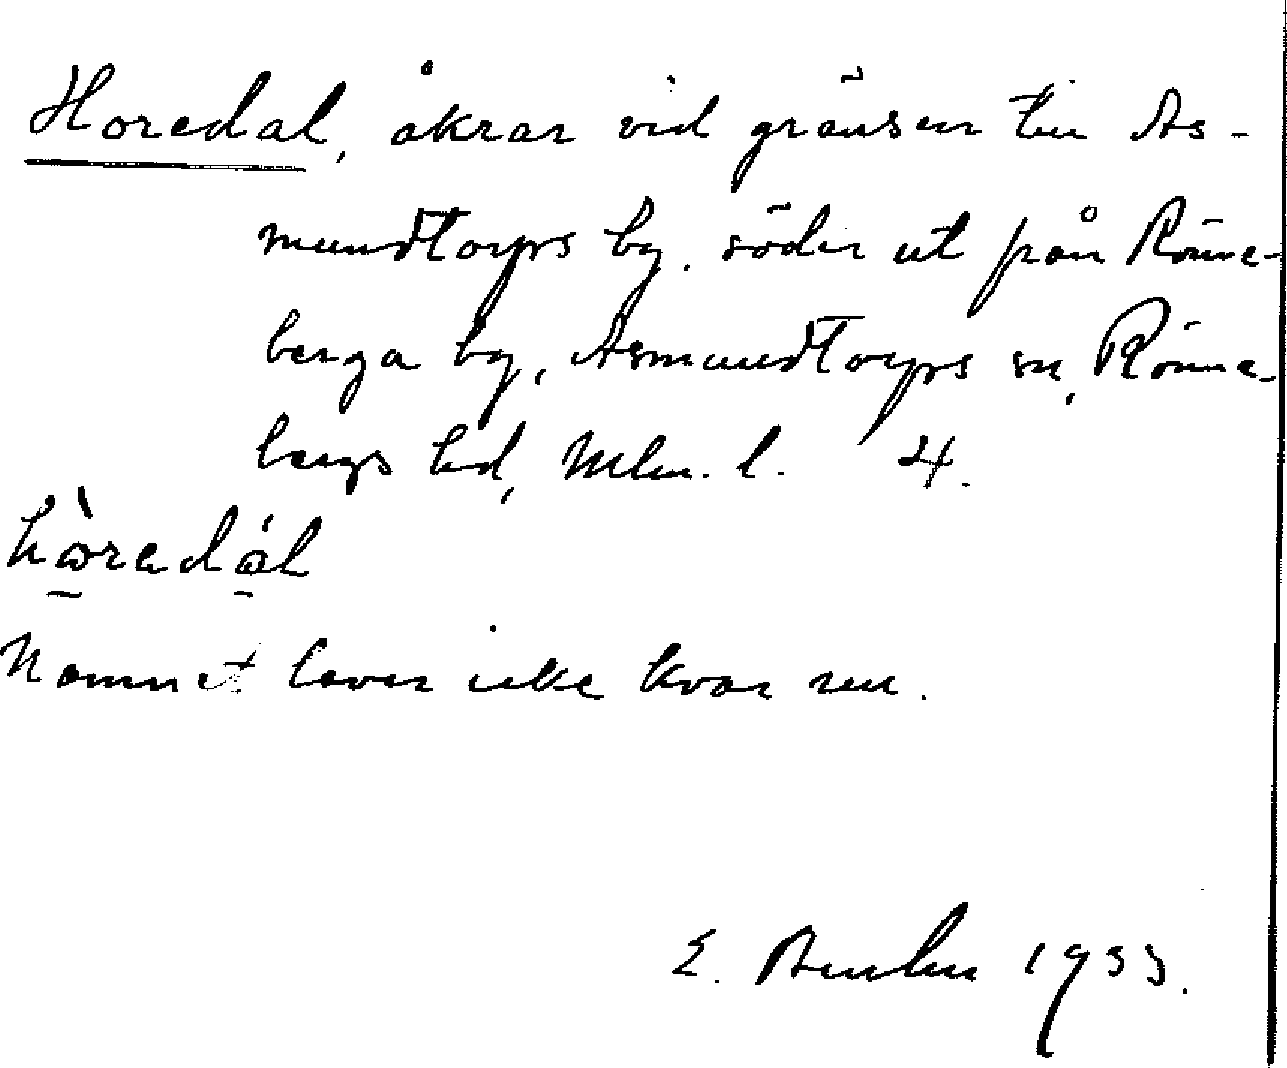 Horedal, åkrar vid gränsen till As-
mundtorps by. söder ut från Rönne-
berga by, Asmundtorps sn, Rönne-
bergs hd, Mlm. l. 4.
hòredál
Namnet lever icke kvar nu.
E. 1933.